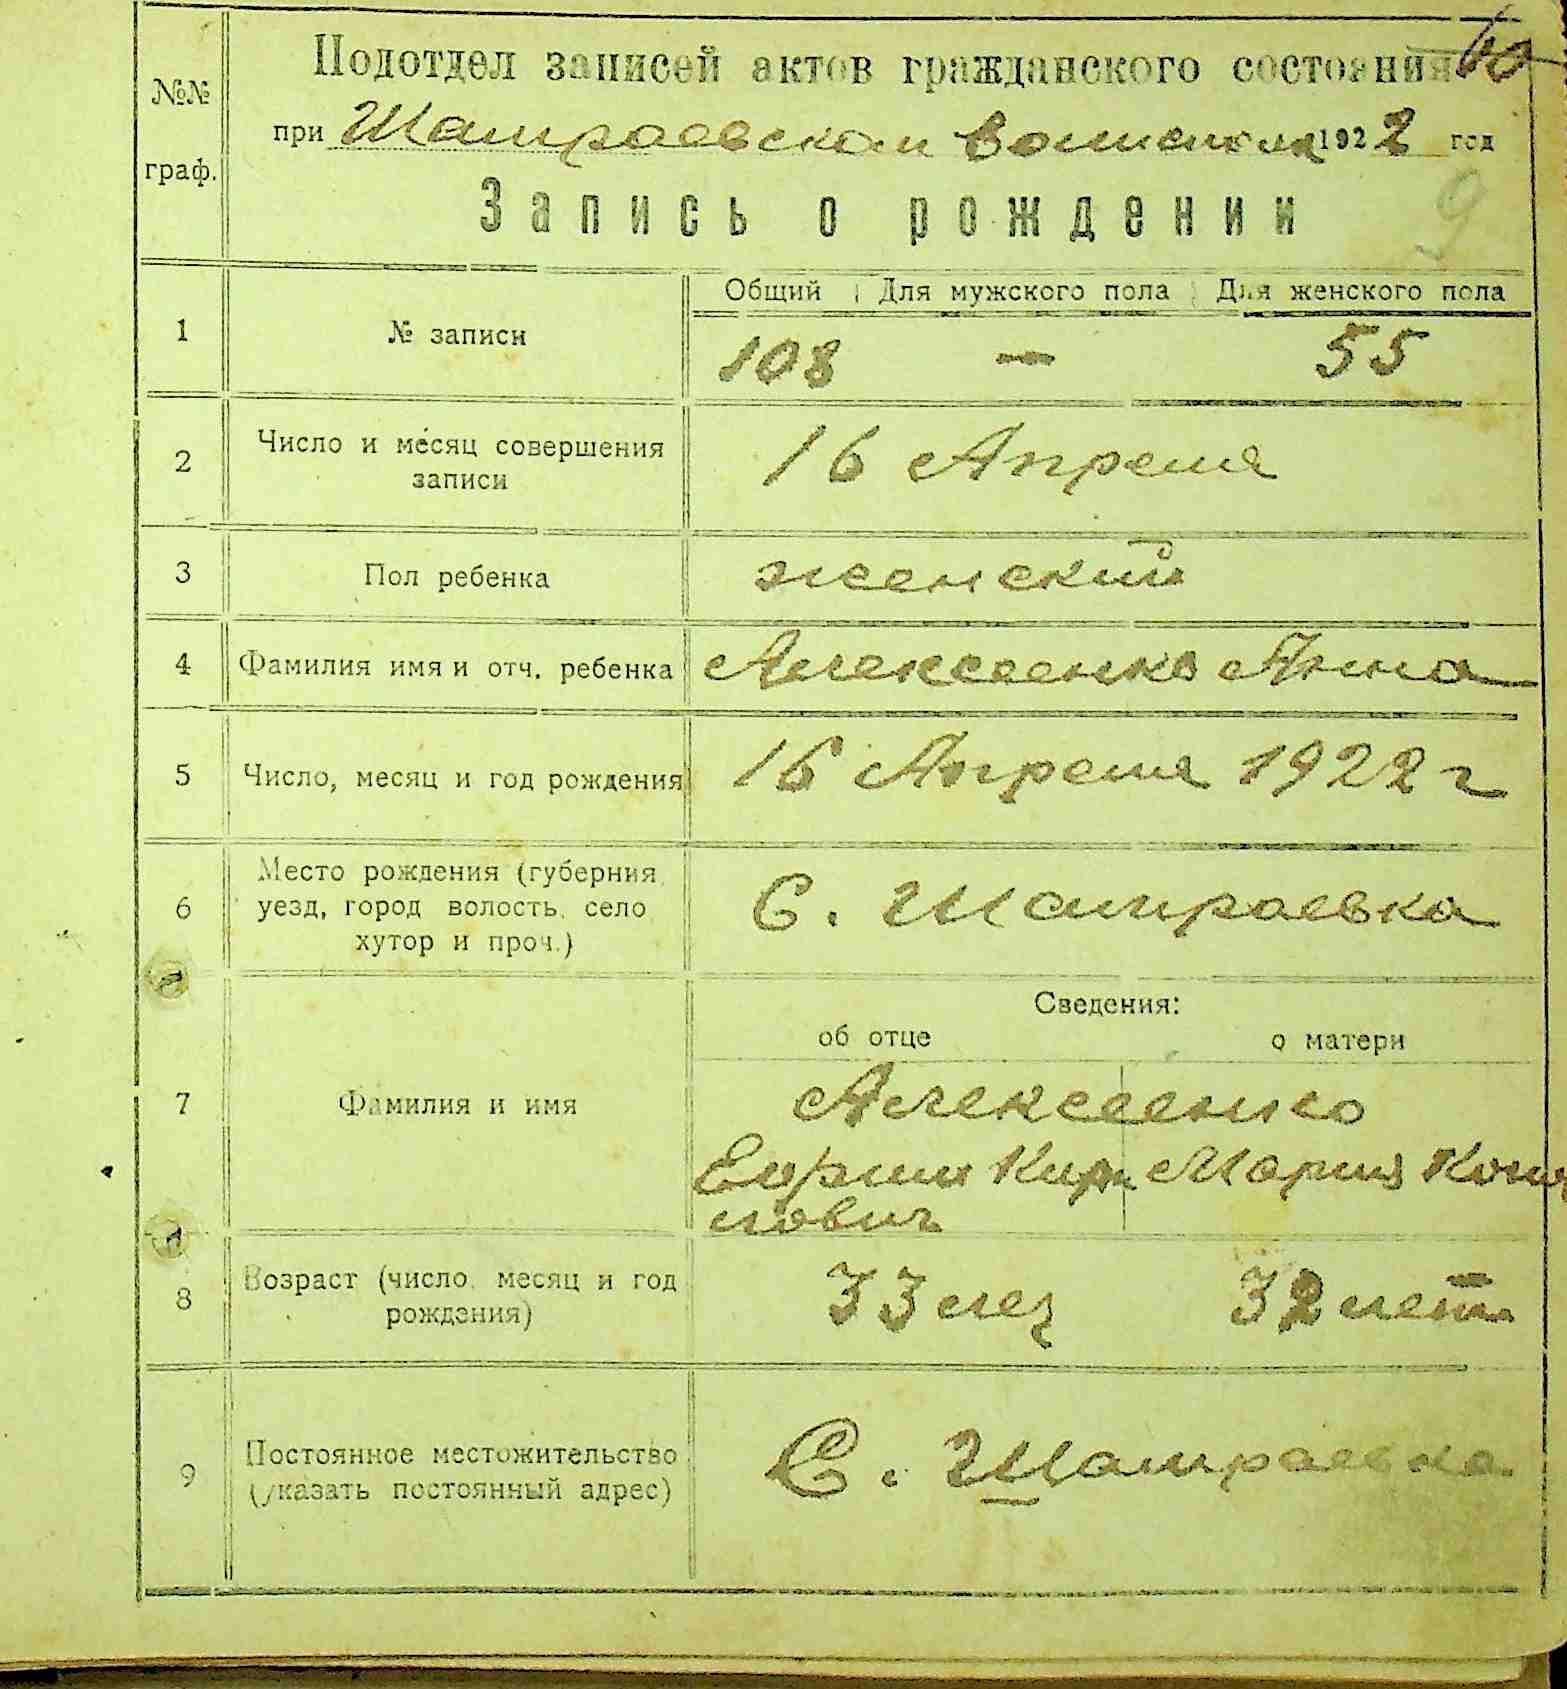 Подотдел записей актов гражданского состояния
№№ граф.
при Шамраевском 1922 год
9
Запись о рождении
Общий Для мужского пола Для женского пола
1 № записи 108 — 55
2 Число и месяц совершения записи 16 Апреля
3 Пол ребенка женский
4 Фамилия имя и отч. ребенка Алексеенко Анна
5 Число, месяц и год рождения 16 Апреля 1922 г
6 Место рождения (губерния, уезд, город волость, село хутор и проч.) С. Шамраевка
Сведения:
об отце о матери
7 Фамилия и имя Алексеенко
Мария
8 Возраст (число, месяц и год рождения) 33 лет 32 лет
9 Постоянное местожительство (указать постоянный адрес) С. Шамраевка